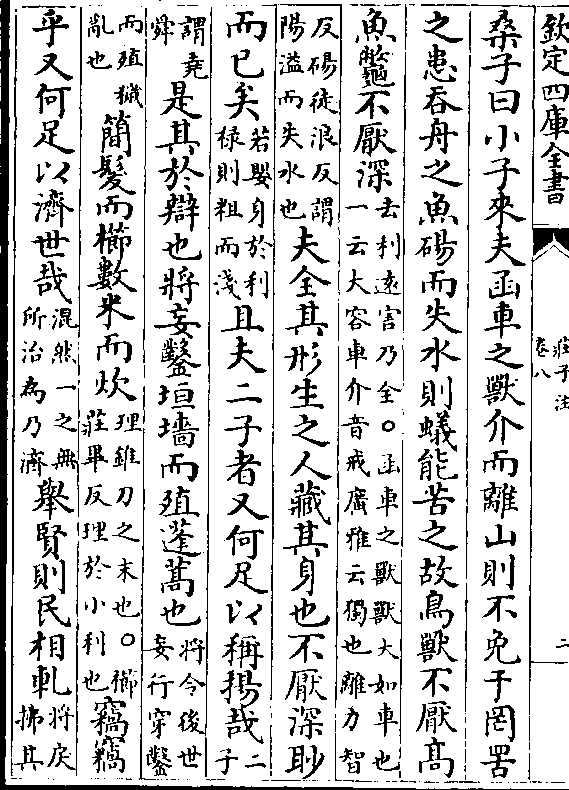 欽定四庫全書
莊子注
卷八
二
桑子曰小子來夫函車之獸介而離山則不免于罔罟
之患吞舟之魚碭而失水則蟻能苦之故鳥獸不厭髙
魚鼈不厭深去利逺害乃全○函車之獸獸大如車也一云大容車介音戒廣雅云獨也離力智
反碭徒浪反謂陽溢而失水也夫全其形生之人藏其身也不厭深眇
而已矣若嬰身於利禄則粗而淺且夫二子者又何足以稱揚哉二子
謂堯舜是其於辯也將妄鑿垣墻而殖蓬蒿也將令後世妄行穿鑿
而殖穢亂也簡髮而櫛數米而炊理錐刀之末也○櫛莊畢反理於小利也竊竊
乎又何足以濟世哉混然一之無所治為乃濟舉賢則民相軋將戾拂其